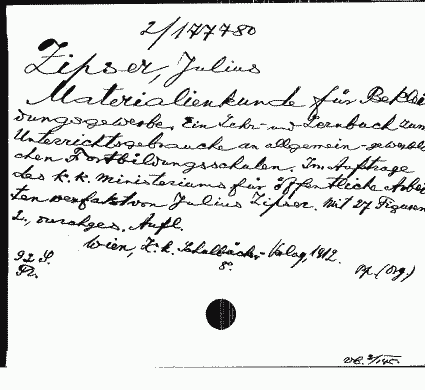 2/177780
Zipser, Julius
Materialienkunde für Beklei-
dungsgewerbe. Ein Lehr- und Lernbuch zum
Unterrichtsgebrauche an allgemein-gewerbli-
chen Fortbildungsschulen. Im Auftrage
des k. k. Ministeriums für öffentliche Arbei-
ten verfaßt von Julius Zipser. Mit 27 Figuren
2., durchges. Aufl.
Wien, K. k. Schulbücher-Verlag, 1912.
92 S. 8°.